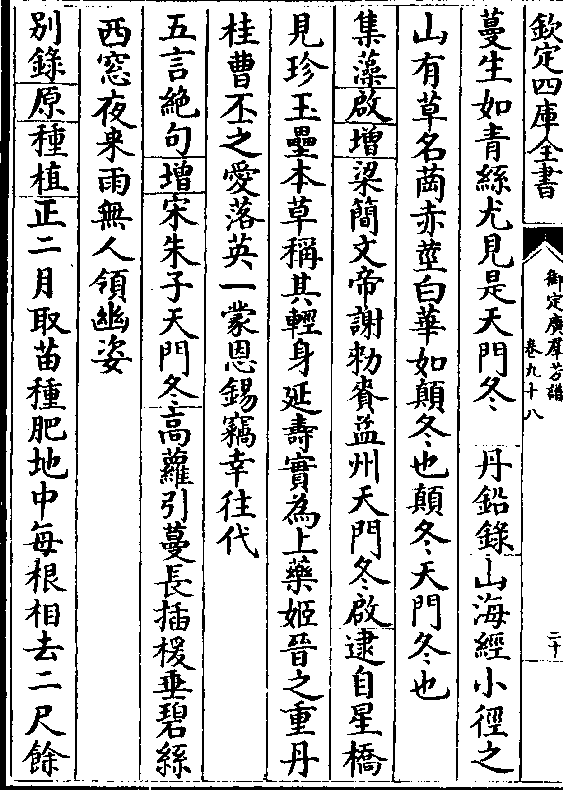 欽定四庫全書
御定廣羣芳譜
卷九十八
二十
蔓生如青絲尤見是天門冬　丹鉛錄山海經小徑之
山有草名䔄赤莖白華如顛冬也顛冬天門冬也
集藻啟增梁簡文帝謝勑賚益州天門冬啟逮自星橋
見珍玉壘本草稱其輕身延壽實為上藥姬晉之重丹
桂曹丕之愛落英一蒙恩錫竊幸往代
五言絶句增宋朱子天門冬高蘿引蔓長插楥垂碧絲
西窓夜來雨無人領幽姿
別錄原種植正二月取苗種肥地中每根相去二尺餘